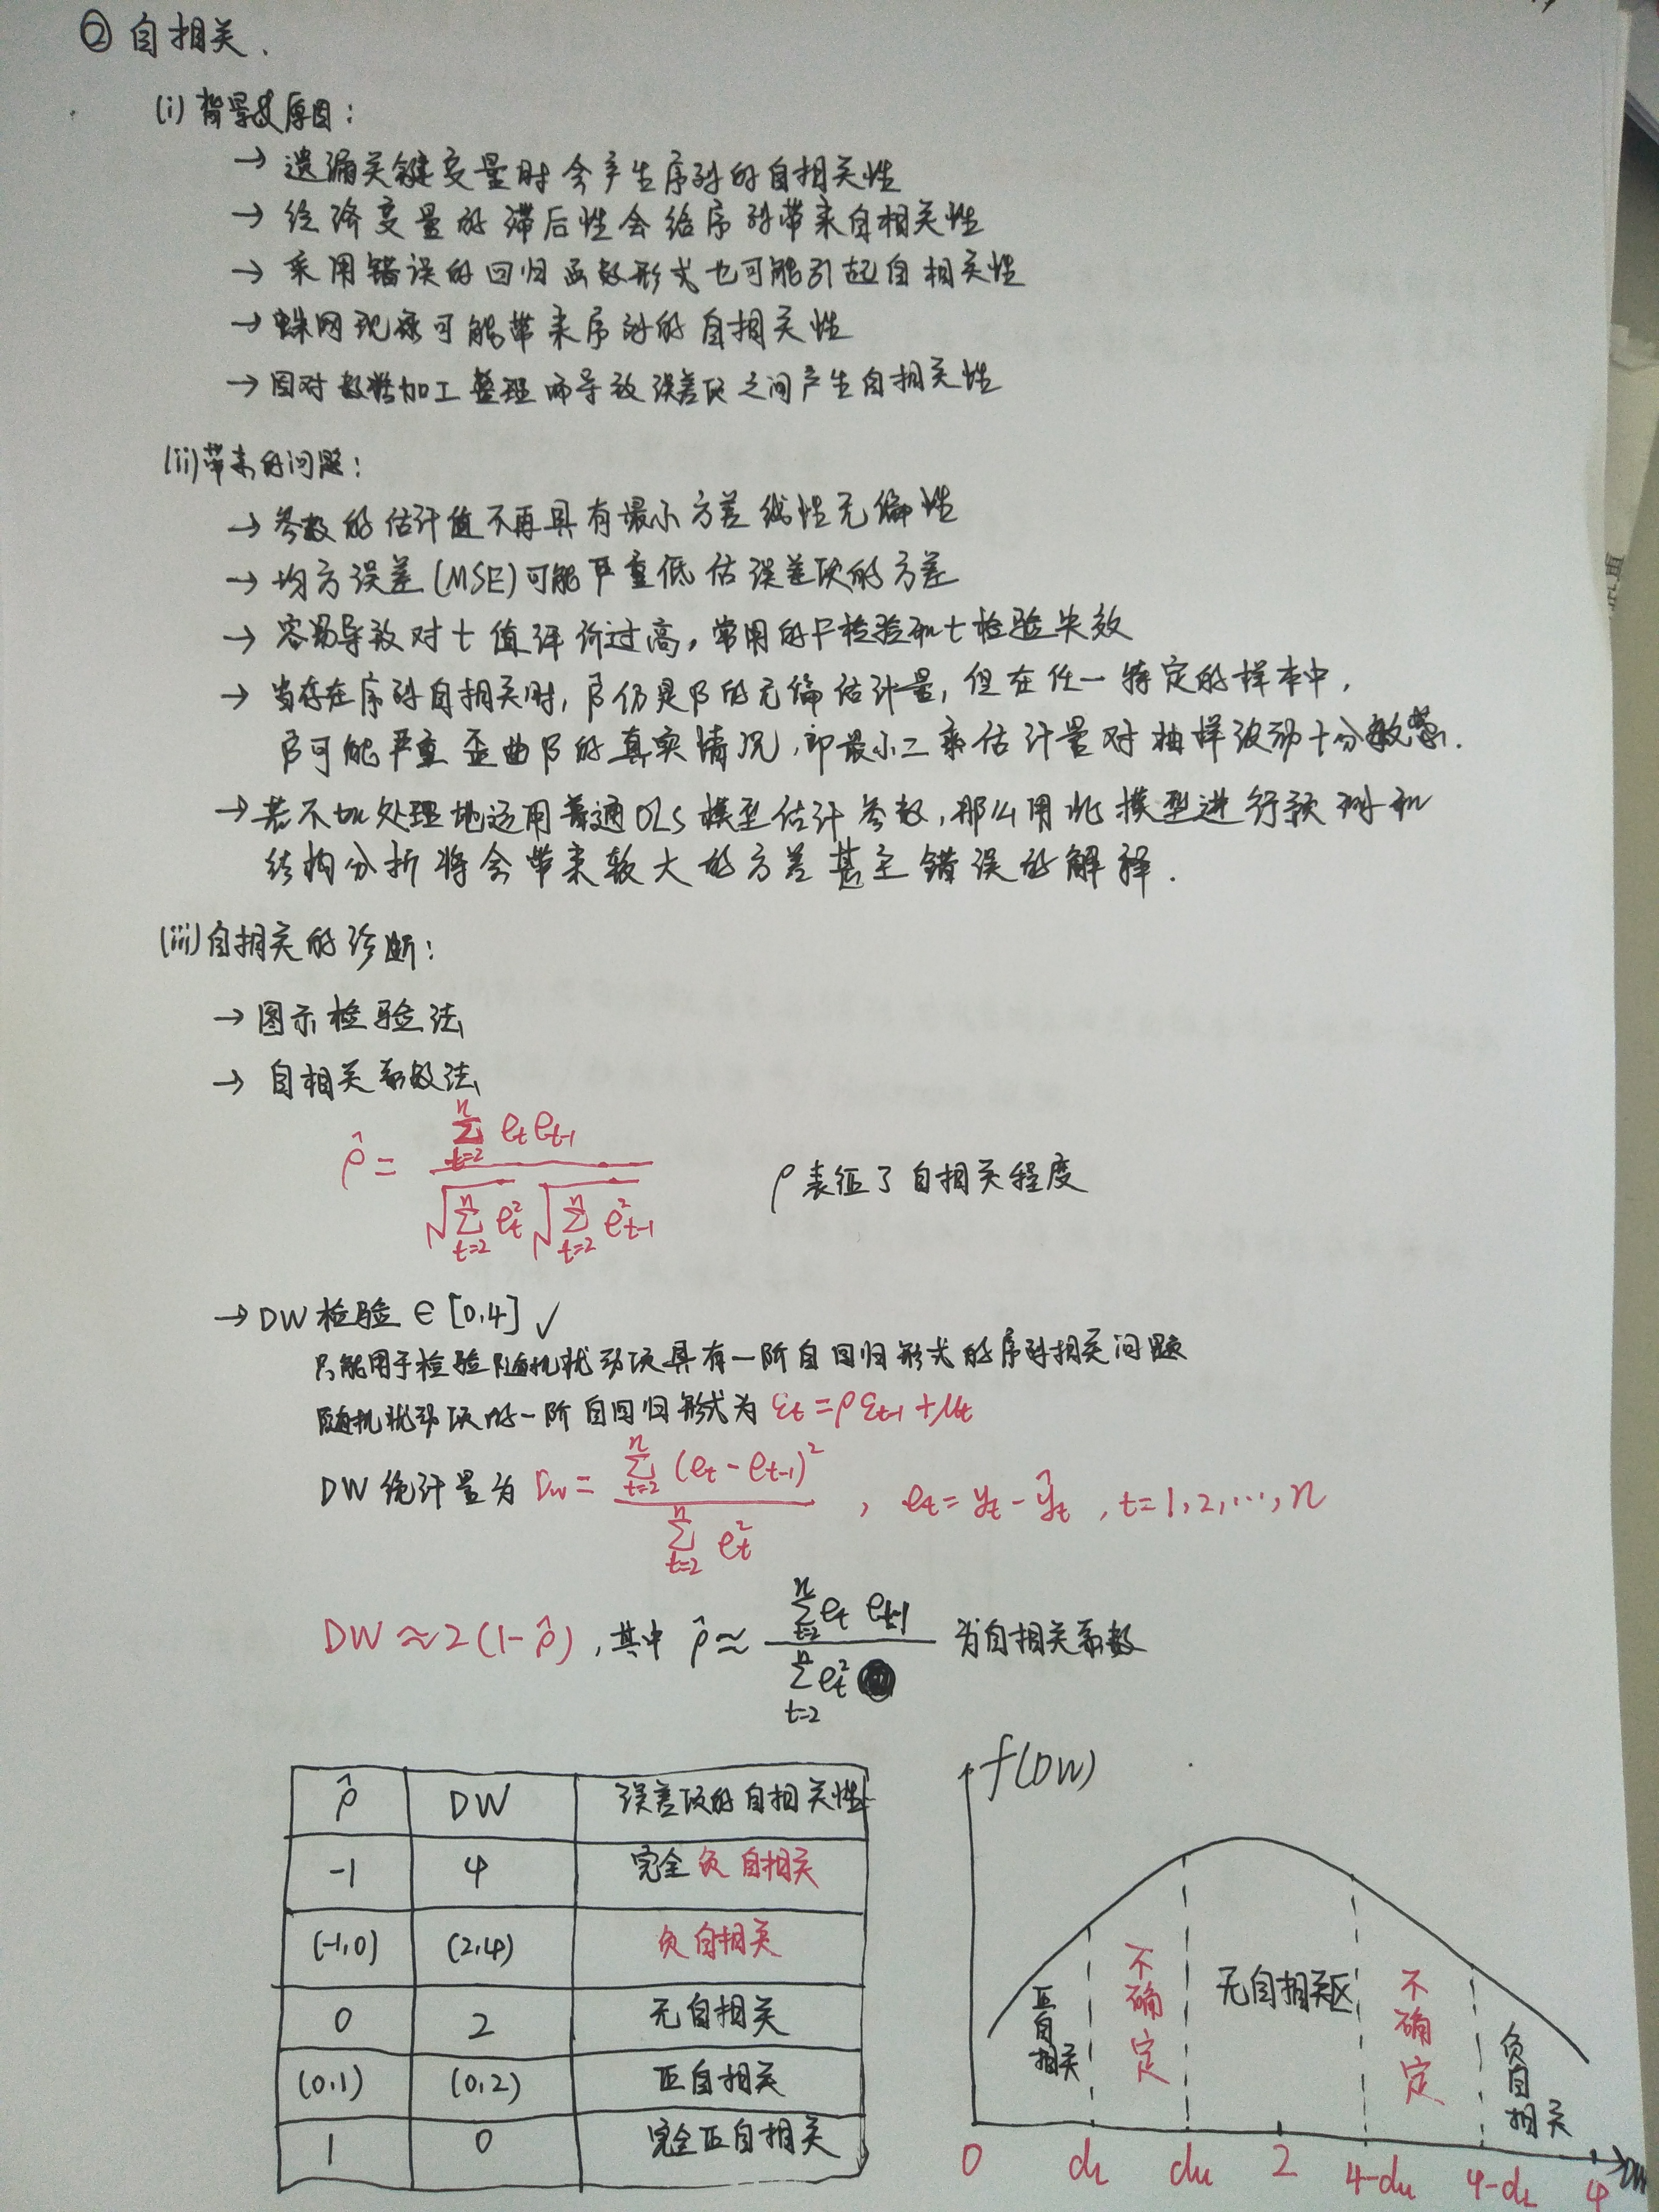 ② 自相关.
(i) 背景及原因:
→ 遗漏关键变量时会产生序列的自相关性
→ 经济变量的滞后性会给序列带来自相关性
→ 采用错误的回归函数形式也可能引起自相关性
→ 蛛网现象可能带来序列的自相关性
→ 因对数据加工整理而导致误差项之间产生自相关性
(ii) 带来的问题:
→ 参数的估计值不再具有最小方差线性无偏性
→ 均方误差(MSE)可能严重低估误差项的方差
→ 容易导致对t值评价过高,常用的F检验和t检验失效
→ 当存在序列自相关时, β̂仍是β的无偏估计量, 但在任一特定的样本中,
β̂可能严重歪曲β的真实情况,即最小二乘估计量对抽样波动十分敏感.
→ 若不加处理地运用普通OLS模型估计参数,那么用此模型进行预测和
结构分析将会带来较大的方差甚至错误的解释.
(iii) 自相关的诊断:
→ 图示检验法
→ 自相关系数法
ρ̂ = Σ_{t=2}^{n} e_t e_{t-1} / (√(Σ_{t=2}^{n} e_t²) √(Σ_{t=2}^{n} e_{t-1}²)) ρ表征了自相关程度
→ DW检验 ∈ [0,4] ✓
只能用于检验随机扰动项具有一阶自回归形式的序列相关问题
随机扰动项的一阶自回归形式为 ε_t = ρε_{t-1} + μ_t
DW统计量为 Dw = Σ_{t=2}^{n} (e_t - e_{t-1})² / Σ_{t=2}^{n} e_t² , e_t = y_t - ŷ_t , t=1,2,…,n
DW ≈ 2(1-ρ̂) ,其中 ρ̂ ≈ Σ_{t=2}^{n} e_t e_{t-1} / Σ_{t=2}^{n} e_t² 为自相关系数
ρ̂ DW 误差项的自相关性
-1 4 完全负自相关
(-1,0) (2,4) 负自相关
0 2 无自相关
(0,1) (0,2) 正自相关
1 0 完全正自相关
f(DW)
正自相关 不确定 无自相关区 不确定 负自相关
0 d_L d_u 2 4-d_u 4-d_L 4 DW